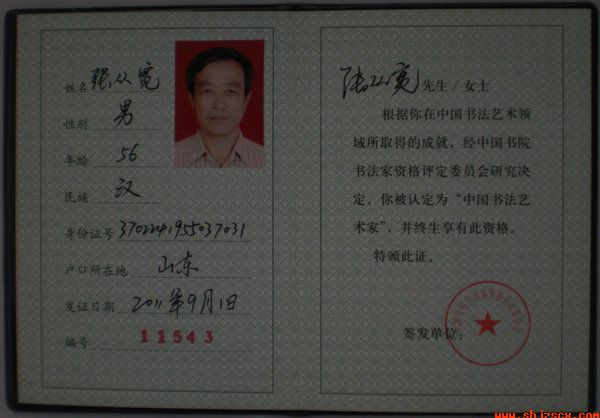 姓名 张从宽
性别 男
年龄 56
民族 汉
身份证号 370224195503031
户口所在地 山东
发证日期 2011年9月1日
编号 11543
张从宽 先生/女士
根据你在中国书法艺术领
域所取得的成就，经中国书院
书法家资格评定委员会研究决
定，你被认定为“中国书法艺
术家”，并终生享有此资格。
特颁此证。
签发单位：
www.shjzscx.com